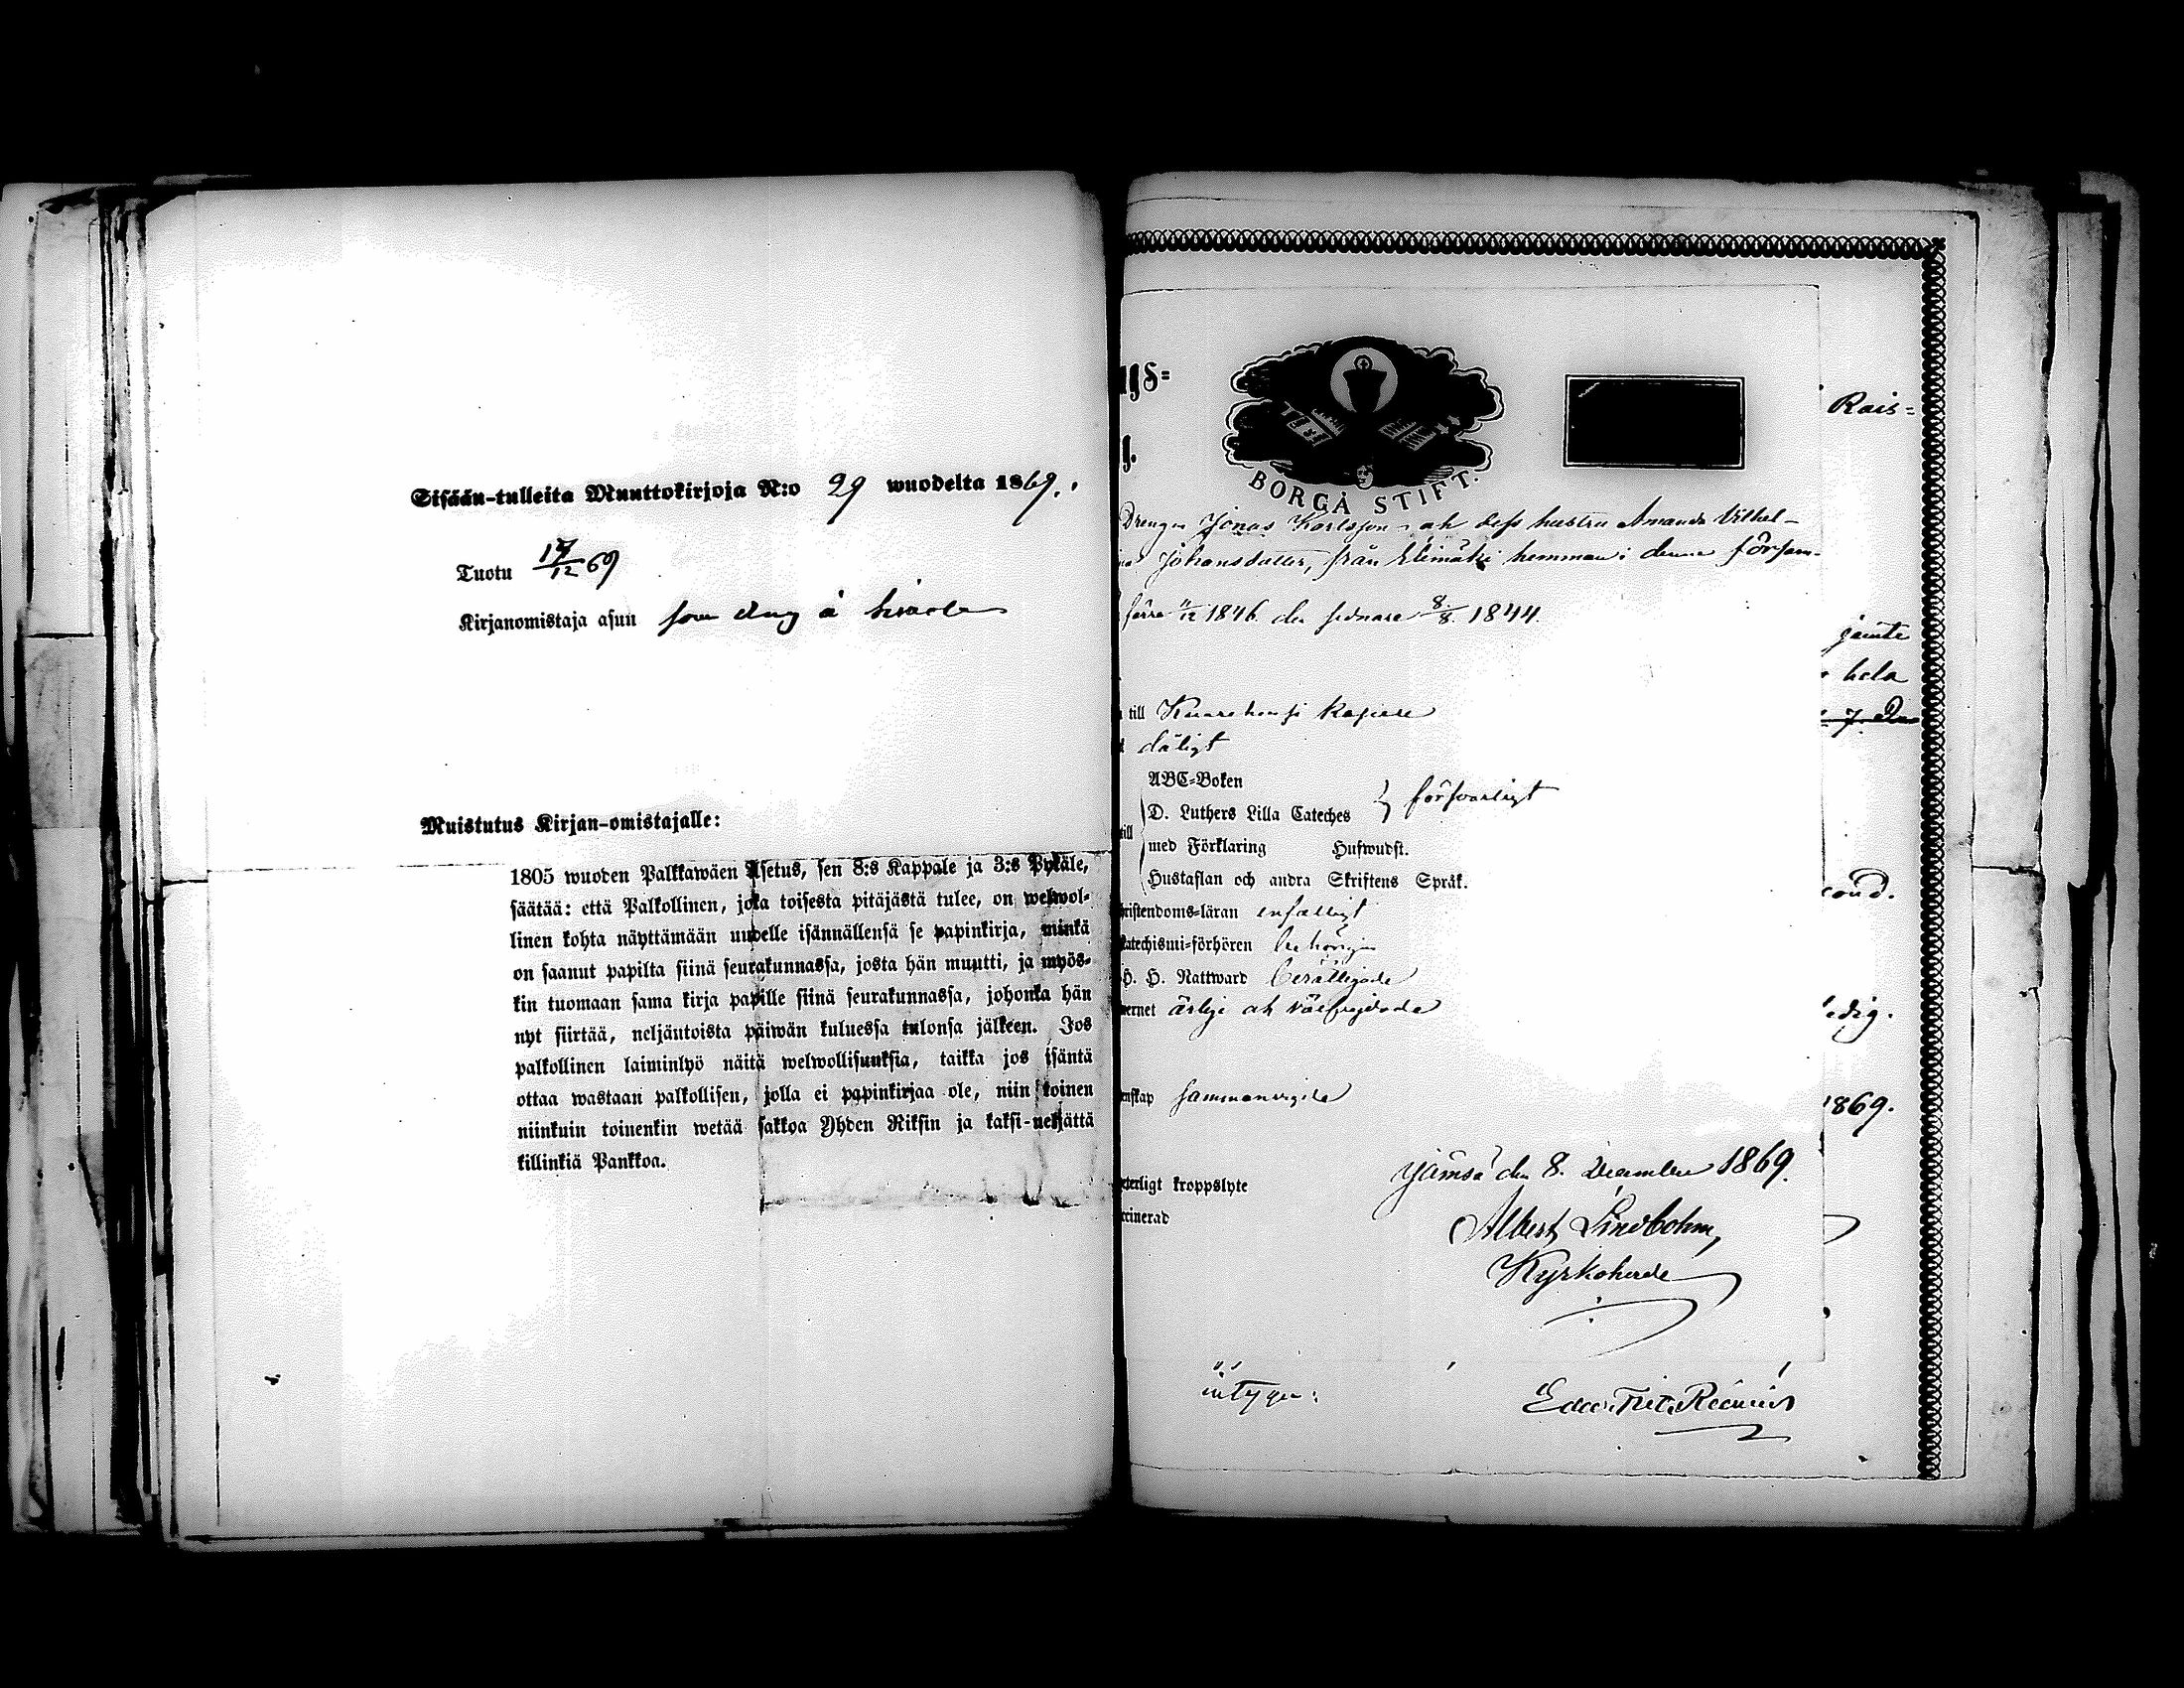 Sisään-tulleita Muuttokirjoja N:o 29 wuodelta 1869.
Tuotu 17/12 69
Kirjanomistaja asuu som dräng å
Muistutus Kirjan-omistajalle:
1805 wuoden Palkkawäen Asetus, sen 8:s Kappale ja 3:s Pykäle,
säätää: että Palkollinen, joka toisesta pitäjästä tulee, on welwol-
linen kohta näyttämään uudelle isännällensä se papinkirja, minkä
on saanut papilta siinä seurakunnassa, josta hän muutti, ja myös-
kin tuomaan sama kirja papille siinä seurakunnassa, johonka hän
nyt siirtää, neljäntoista päiwän kuluessa tulonsa jälkeen. Jos
palkollinen laiminlyö näitä welwollisuuksia, taikka jos isäntä
ottaa wastaan palkollisen, jolla ei papinkirjaa ole, niin toinen
niinkuin toinenkin wetää sakkoa Yhden Riksin ja kaksi-neljättä
killinkiä Pankkoa.
gs=
BORGÅ STIFT.
Rais=
Drengen Jonas Karlsson och dess hustru Amanda Vilhel-
Johansdotter, från hemman i denna försam-
förre 11/12 1846. den sednare 8/8. 1844.
jemte
hela
till Kuorehvesi kapell
dåligt
ABC-Boken
D. Luthers Lilla Cateches } försvarligt
till
med Förklaring Hufwudst.
Hustaflan och andra Skriftens Språk.
cond.
ristendoms=läran enfaldigt
atechismi=förhören behörigen
H. H. Nattward berättigade
wernet ärlige och välfrejdade
edig.
enskap sammanvigde
1869.
Jämsä den 8. December 1869.
eterligt kroppslyte
ccinerad
Albert Lindbohm,
Kyrkoherde
intygar: